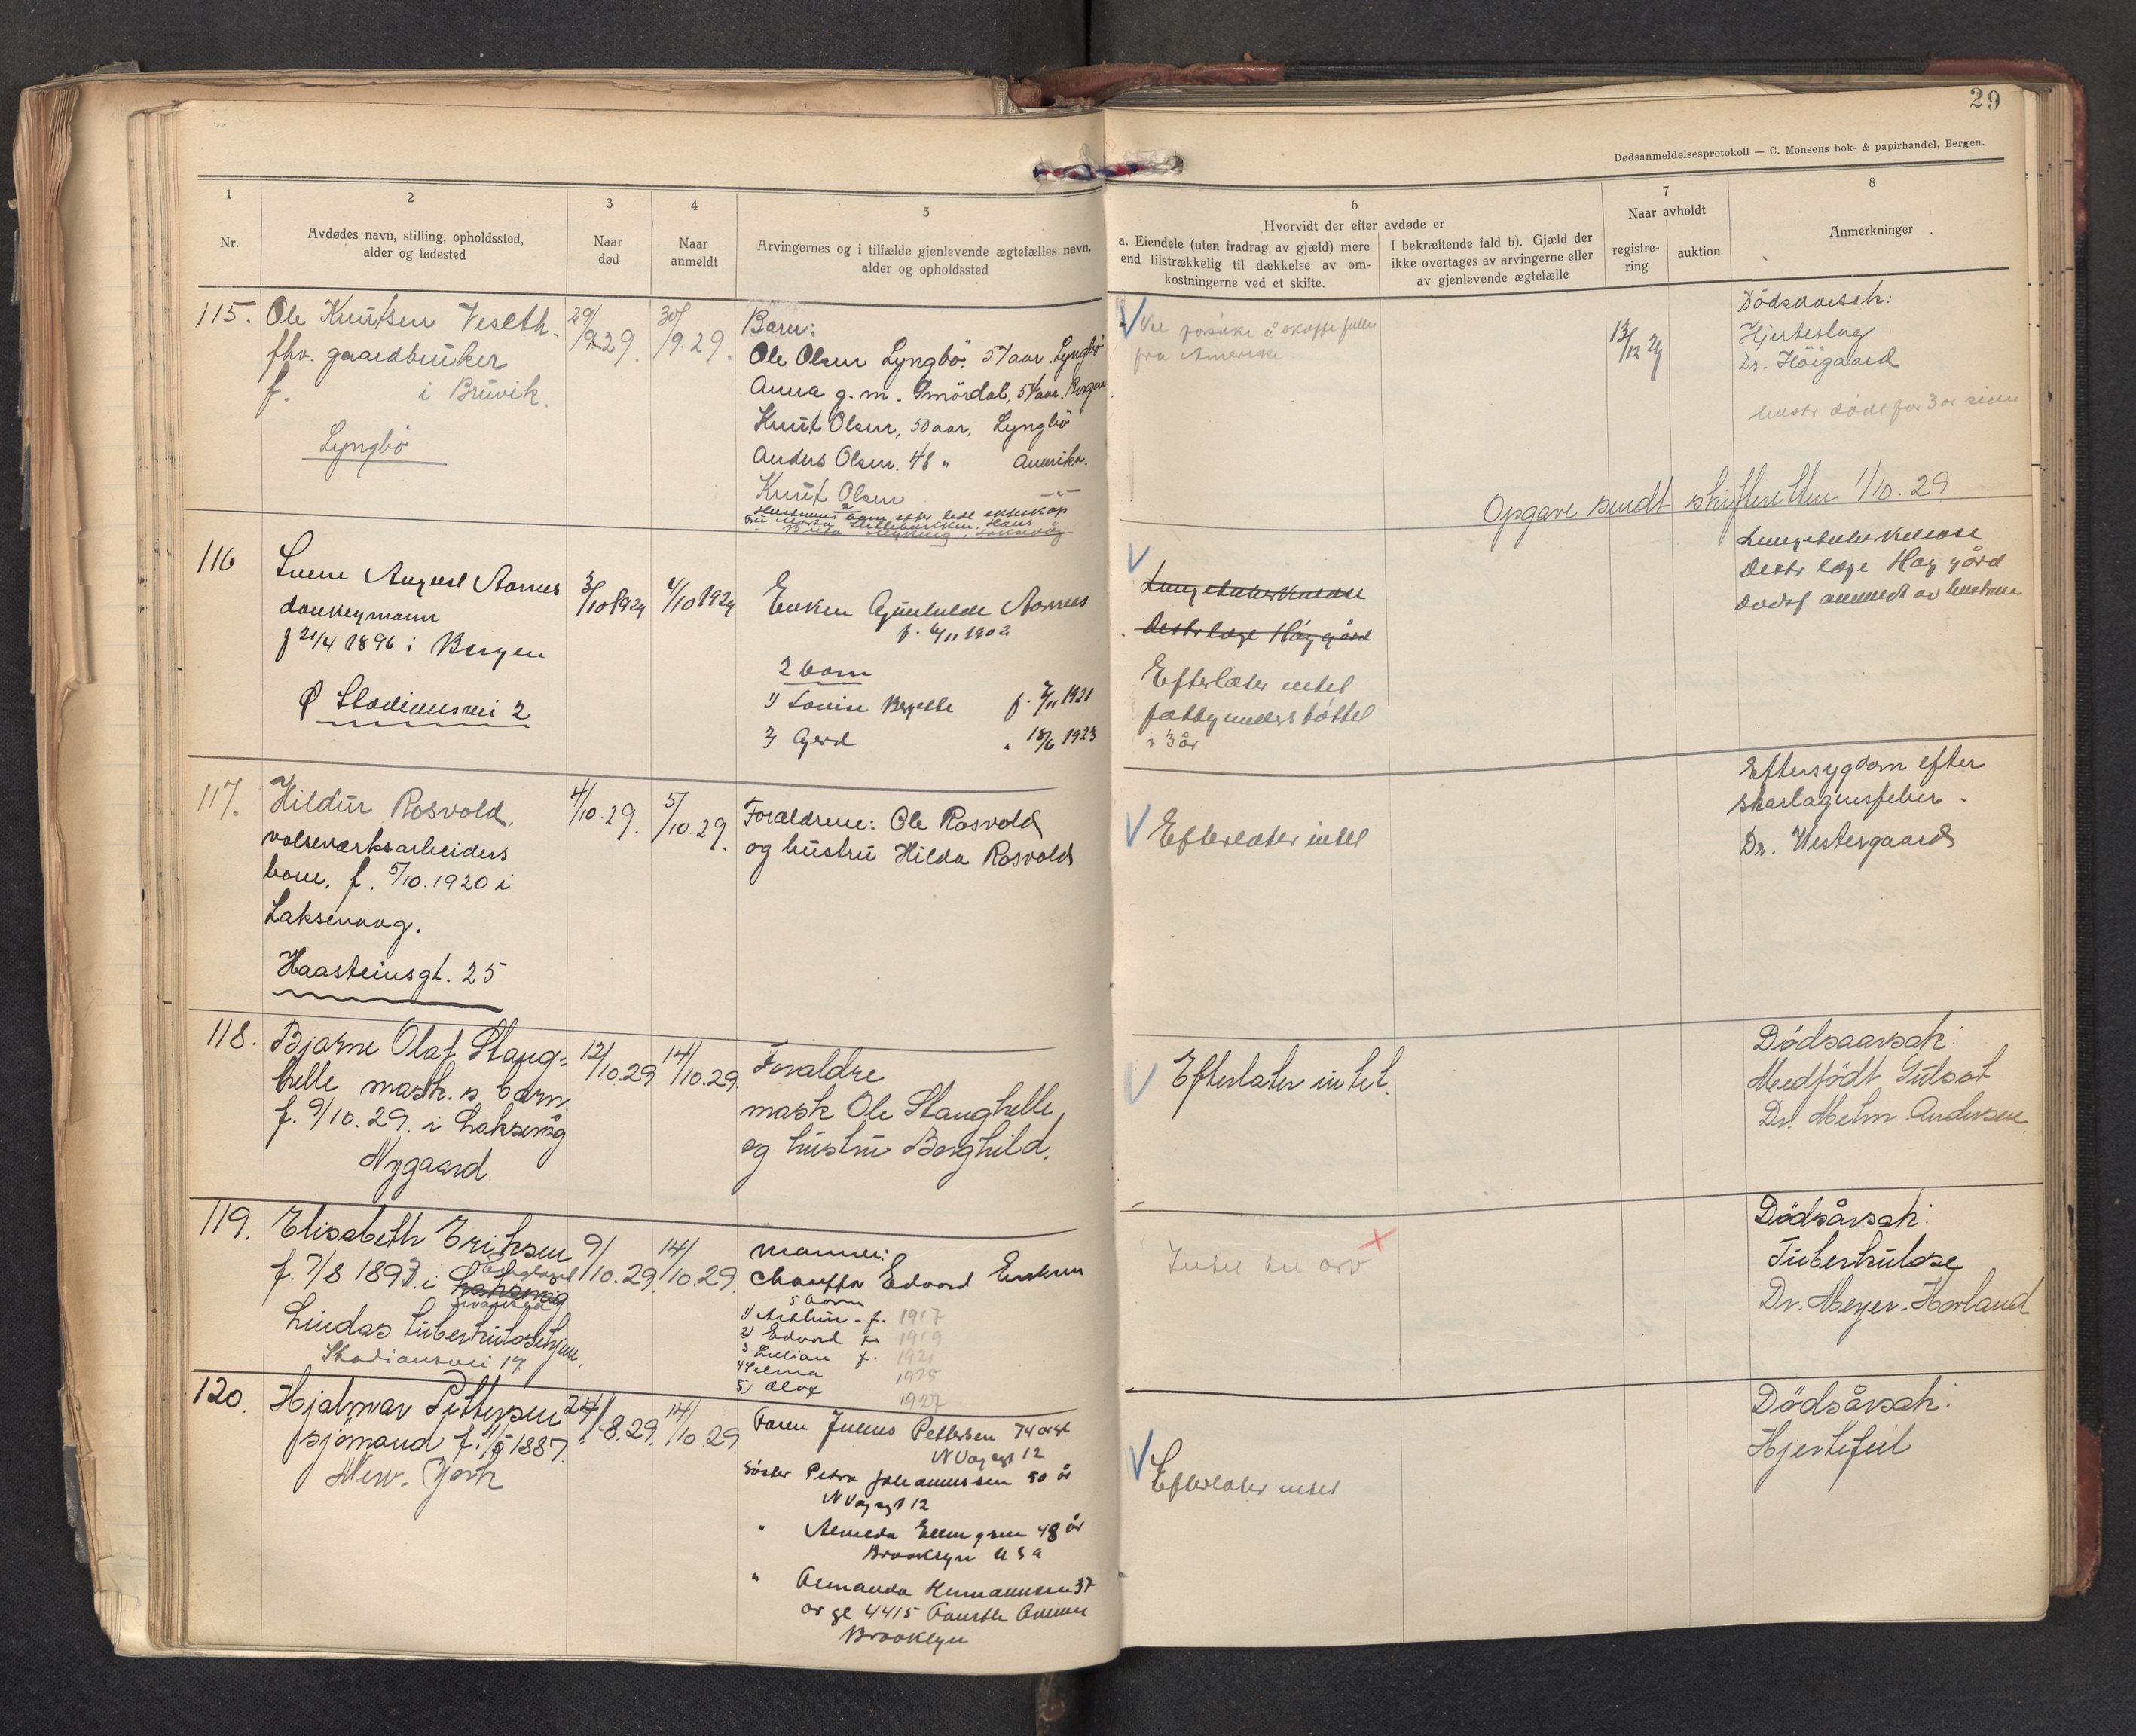 29
Dødsanmeldelsesprotokoll — C. Monsens bok- & papirhandel, Bergen.
1
Nr.
2
Avdødes navn, stilling, opholdssted,
alder og fødested
3
Naar
død
4
Naar
anmeldt
5
Arvingernes og i tilfælde gjenlevende ægtefælles navn,
alder og opholdssted
6
Hvorvidt der efter avdøde er
a. Eiendele (uten fradrag av gjæld) mere
end tilstrækkelig til dækkelse av om-
kostningerne ved et skifte.
I bekræftende fald b). Gjæld der
ikke overtages av arvingerne eller
av gjenlevende ægtefælle
7
Naar avholdt
registre-
ring
auktion
8
Anmerkninger
115.
Ole Knutsen Veseth.
fhv. gaardbruker
f. i Bruvik.
Lyngbö
29/9 29.
30/9.29.
Barn:
Ole Olsen Lyngbö. 57 aar. Lyngbö
Anna g. m. Smördal, 54 aar. Bergen
Knut Olsen, 50 aar, Lyngbö
Anders Olsen. 48 " Amerika.
Knut Olsen —"—
Vil forsöke å skaffe
fra Amerika.
13/12 29
Dödsaarsak:
Hjerteslag
Dr. Höigaard
hustr döde for 3 år siden
Opgave sendt skifteretten 1/10.29
116
August Aarnes
donkeymann
f 21/4 1896 i Bergen
Ø Stadionsvei 2
3/10 1929
4/10 1929
Enken Gunhilde Aarnes
f. 1902
2 barn
1) Louise Bergette f. 7/11 1921
2) Gerd " 18/6 1923
Lungetuberkulose
Destr læge Höygård
Efterlater intet
fattigunderstöttet
i 3 år
Lungetuberkulose
Destr læge Höygård
Dödsf anmeldt av hustruen
117.
Hildur Rosvold,
valseværksarbeiders
barn, f. 5/10.1920 i
Laksevaag.
Haasteinsgt. 25
4/10.29.
5/10.29.
Foraldrene: Ole Rosvold
og hustru Hilda Rosvold
Efterlater intet
Eftersygdom efter
skarlagensfeber.
Dr. Westergaard
118.
Bjarne Olaf Stang-
helle mask. s barn.
f. 9/10.29. i Laksevåg
Nygaard.
12/10.29
14/10.29.
Foraldre
mask Ole Stanghelle,
og hustru Borghild.
Efterlater intet.
Dödsaarsak:
Medfödt Gulsot
Dr. Melm Andersen.
119.
Elisabeth Eriksen
f. 7/8 1897. i Laksevåg
Lindås tuberkulosehjem.
Stadionsvei 17
9/10.29.
14/10.29.
mannen:
Chauffør Edvard Eriksen
5 barn
1) Arthur - f. 1917
2) Edvard f. 1919
3 Lillian f. 1921
4 Selma 1925
5) Olaf 1927
Intet til arv
Dödsårsak:
Tuberkulose
Dr. Meyer-Horland
120.
Hjalmar Pettersen
sjömand f. 1887.
New-York
24/8.29.
14/10.29.
Faren Julius Pettersen 74 år
N Vaagsgt 12
Söster Petra Johannessen 50 år
N Vaagsgt 12
" Almelda Ellingsen 48 år
Brooklyn U S a
" Amanda Hermannsen 37
år gl 4415 Fourth Avenue
Brooklyn
Efterlater intet
Dödsårsak:
Hjertefeil